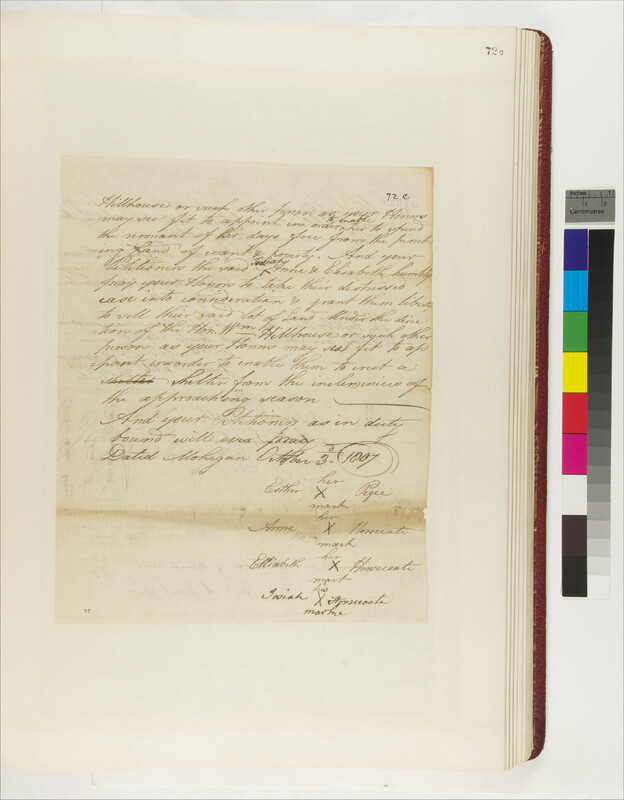 72c
72 c
Hillhouse or such other person as your Honors
may see fit to appoint in order to enable her to spend
the remnant of her days free from the pinch-
ing hand of want & penury. And your
Petitioners the said Josiah Anne & Elisabeth humbly
pray your Honors to take their distressed
case into consideration & grant them liberty
to sell their said lot of land under the direc
tion of the Hon. Wm Hillhouse or such other
person as your Honors may see fit to ap
point in order to enable them to erect a
shelter from the inclemencies of
the approaching season
And your Petitioners as in duty
bound will ever pray
Dated Mohegan October 3d 1807
her
Esther X Pegee
mark
her
Anne X Horsceate
mark
her
Elliabeth X Horsceate
mark
his
Josiah X Horsceate
marke
Inches 1 2
Centimetres